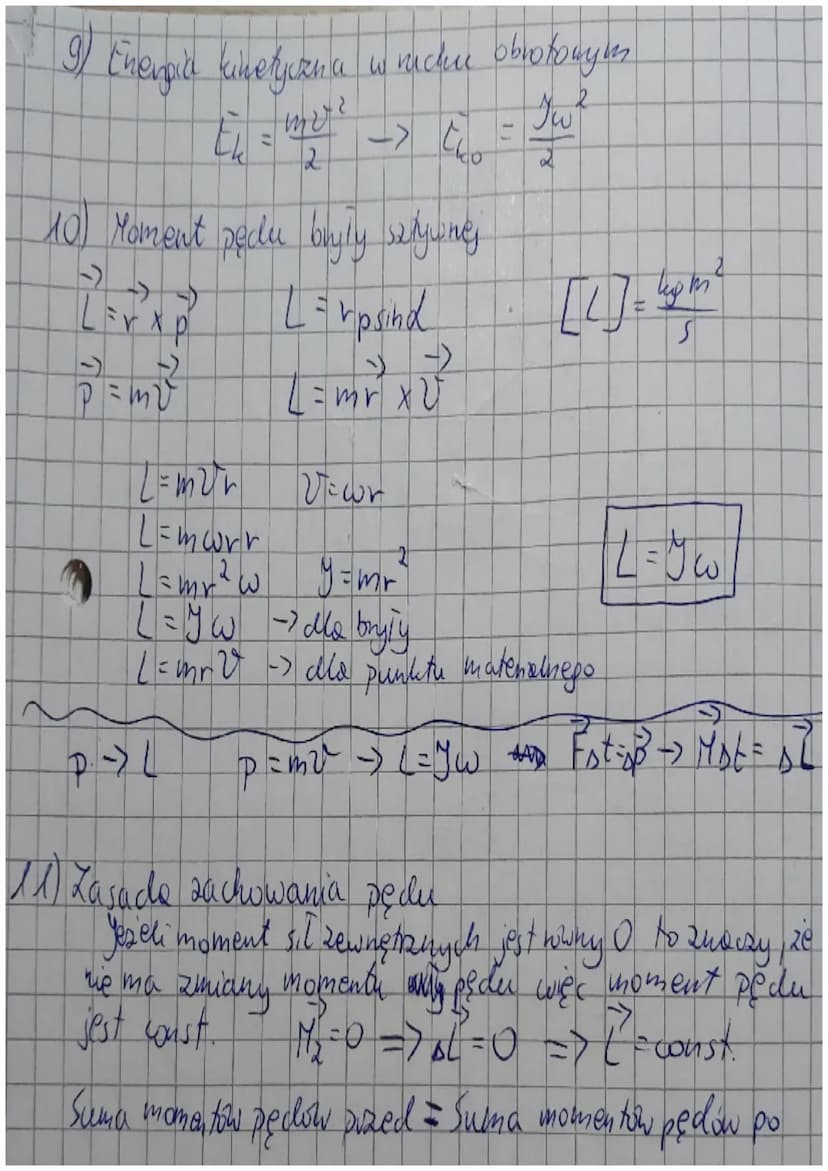 9) Energia kinetyczna w ruchu obrotowym
E_k = mv²/2 -> E_ko = Jω²/2
10) Moment pędu bryły sztywnej
L⃗ = r⃗ × p⃗ L = rpsinα [L] = kgm²/s
p⃗ = mv⃗ L = mr⃗ × v⃗
L = mvr v = ωr
L = mωrr
L = mr²ω J = mr² L = Jω
L = Jω -> dla bryły
L = mrv -> dla punktu materialnego
p -> L p = mv -> L = Jω F⃗Δt = Δp⃗ -> M⃗Δt = ΔL⃗
11) Zasada zachowania pędu
Jeżeli moment sił zewnętrznych jest równy 0 to znaczy, że
nie ma zmiany momentu pędu więc moment pędu
jest const. M⃗_z = 0 => ΔL⃗ = 0 => L⃗ = const.
Suma momentów pędów przed = Suma momentów pędów po